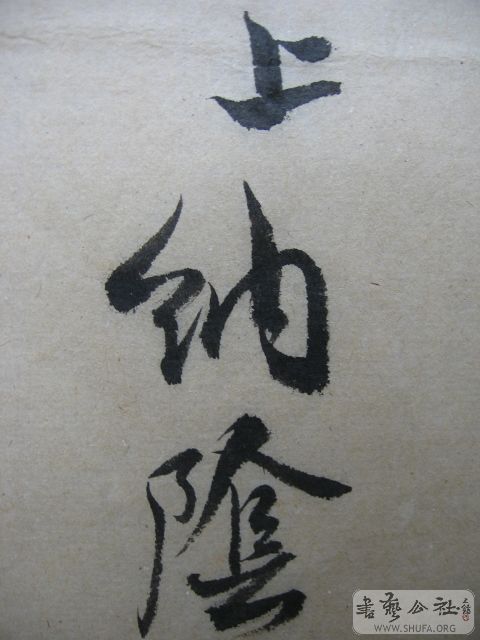 上纳陰
書藝公社
WWW.SHUFA.ORG